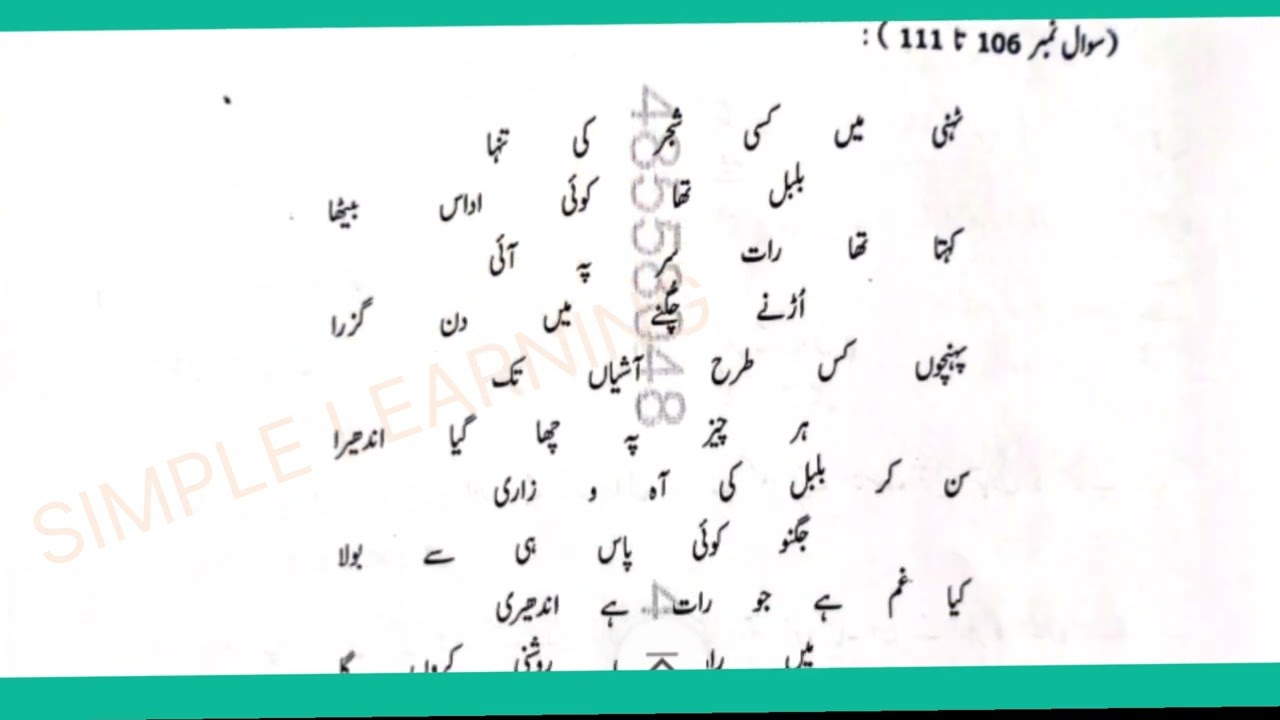 (سوال نمبر 106 تا 111 ) :
ٹہنی میں کسی شجر کی تنہا
بلبل تھا کوئی اداس بیٹھا
کہتا تھا رات سر پہ آئی
اُڑنے چُگنے میں دن گزرا
پہنچوں کس طرح آشیاں تک
ہر چیز پہ چھا گیا اندھیرا
سن کر بلبل کی آہ و زاری
جگنو کوئی پاس ہی سے بولا
کیا غم ہے جو رات ہے اندھیری
میں روشنی کروں گا
48558048
4
SIMPLE LEARNING